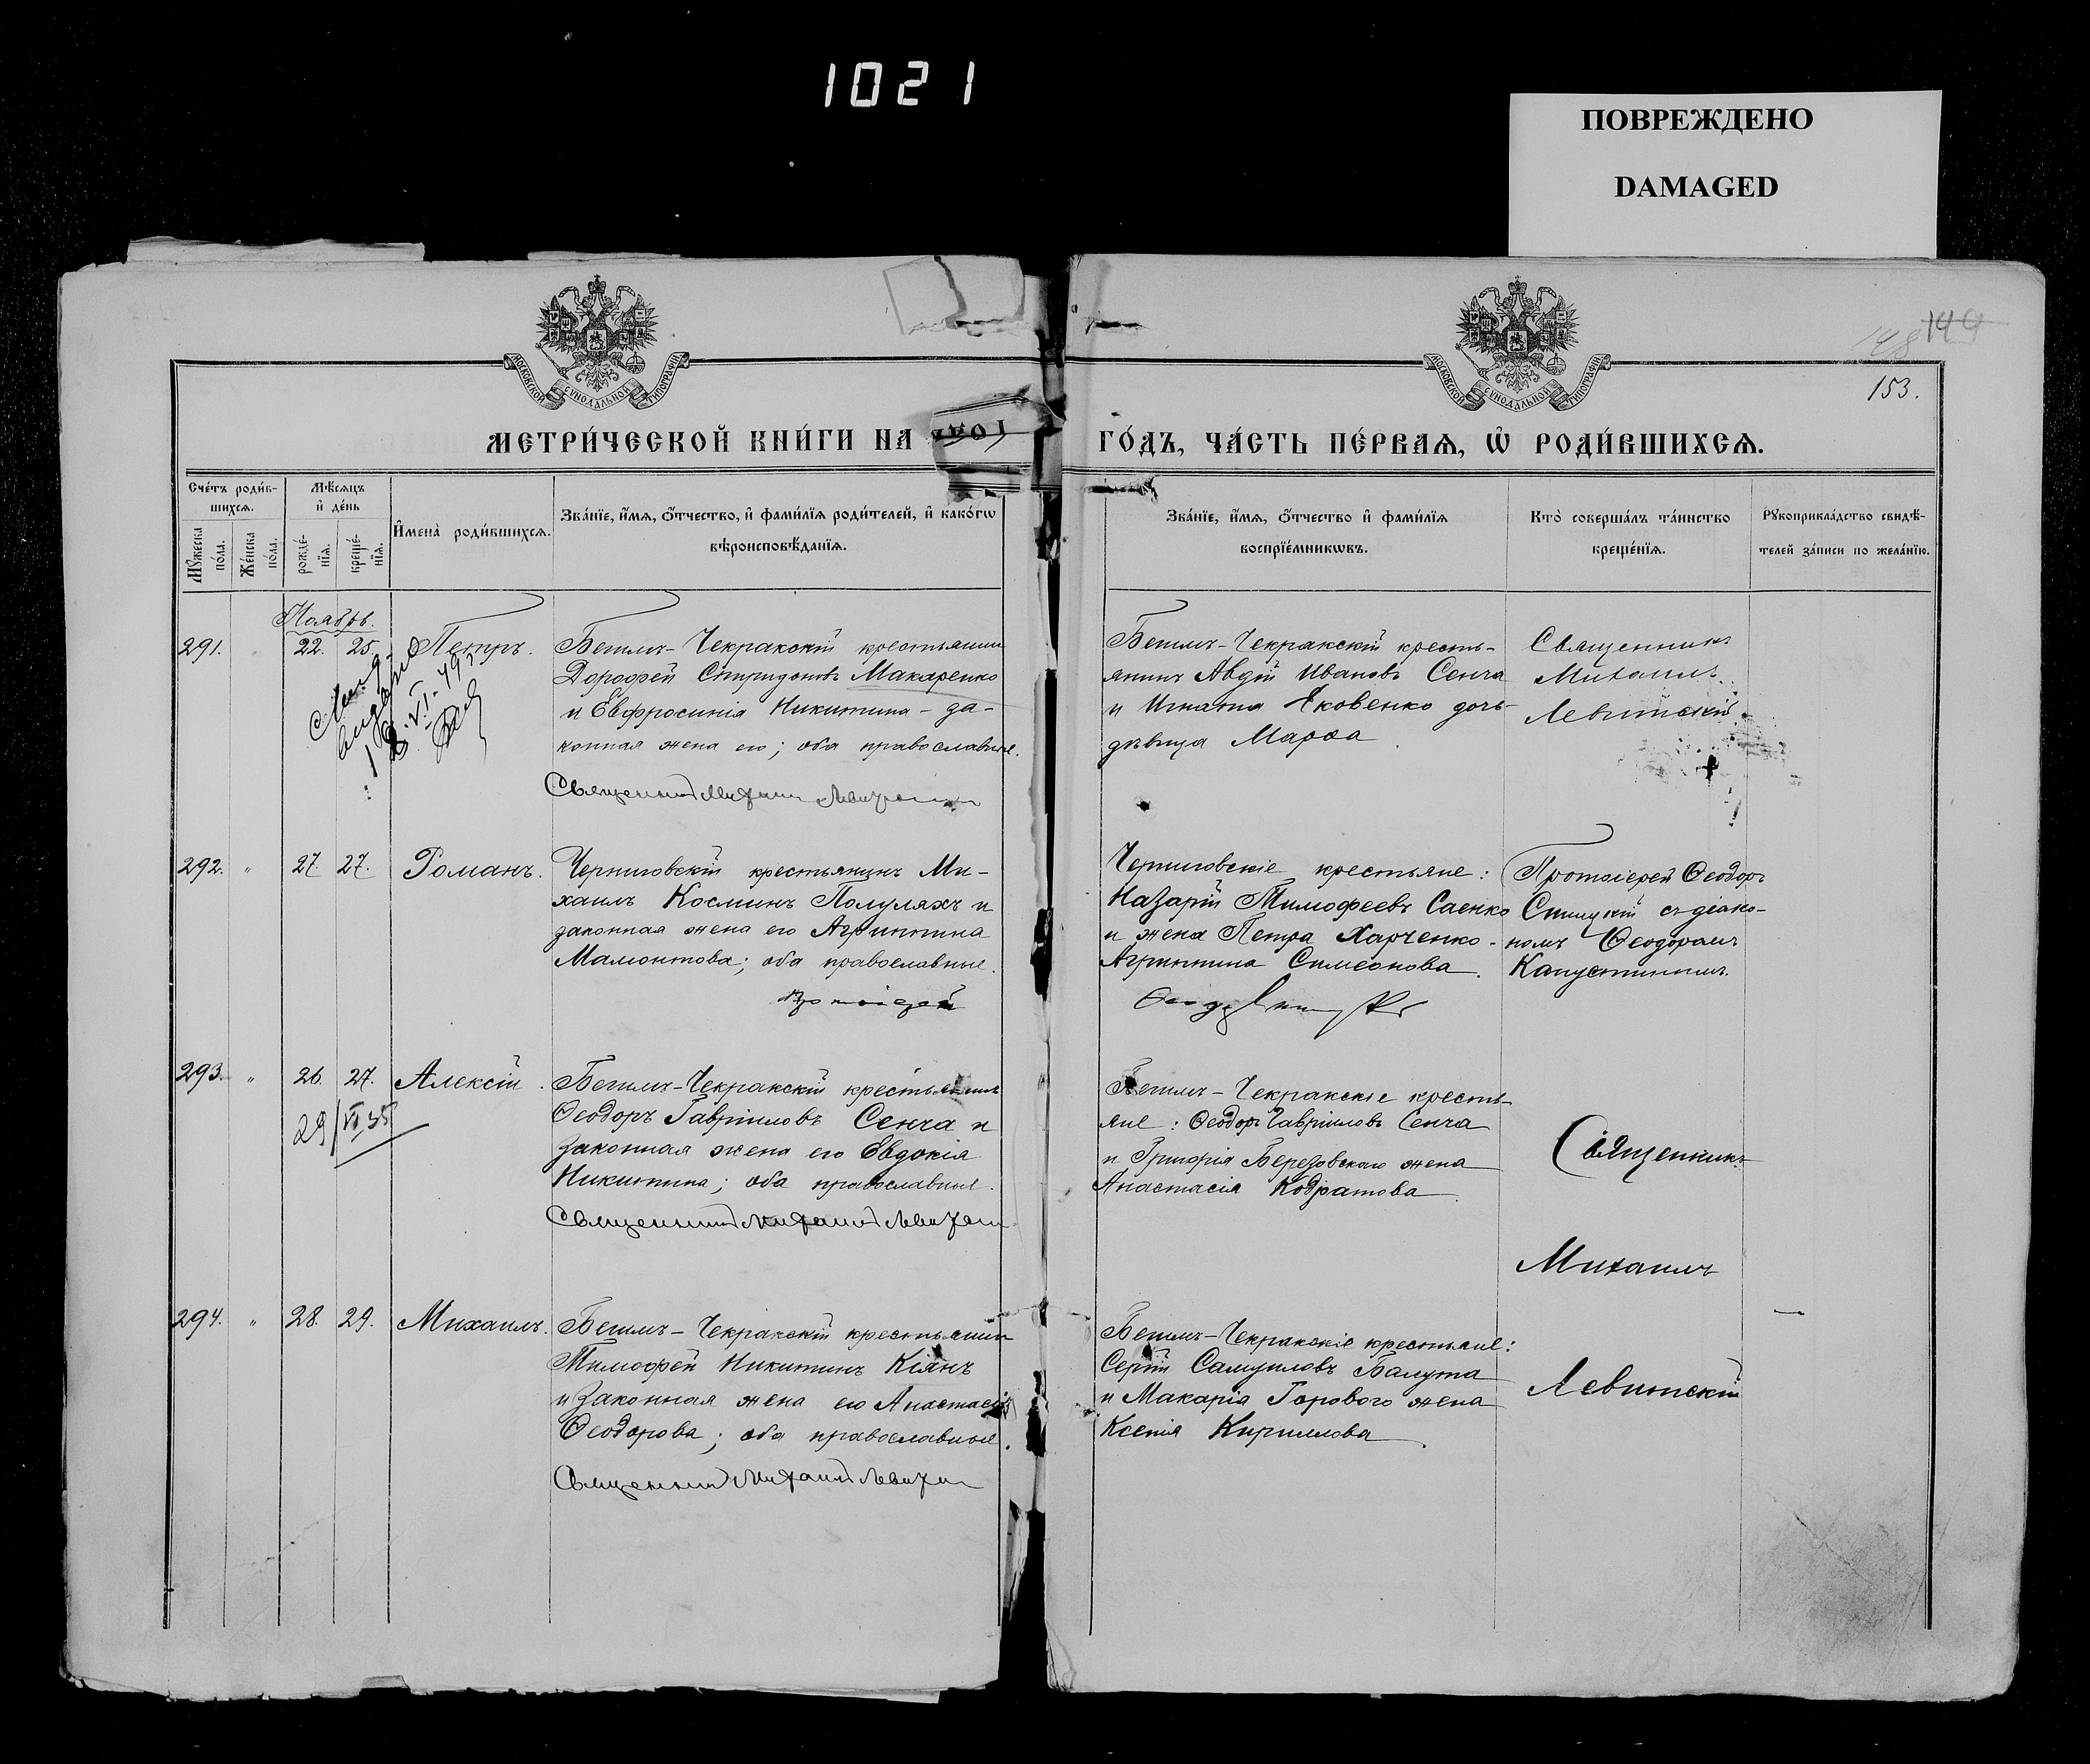 1021
ПОВРЕЖДЕНО
DAMAGED
МОСКОВСКОЙ СУНОДАЛЬНОЙ ТИПОГРАФІИ
МОСКОВСКОЙ СУНОДАЛЬНОЙ ТИПОГРАФІИ
148 149
153.
МЕТРИ́ЧЕСКОЙ КНИ́ГИ НА
ГО́ДЪ, ЧА́СТЬ ПЕ́РВАѦ, Ѡ҆ РОДИ́ВШИХСѦ.
Сче́тъ роди́в-
шихсѧ.
Мꙋжеска по́ла.
Же́нска по́ла.
Мѣ́сѧцъ
и҆ де́нь
рожде́-
нїѧ.
креще́-
нїѧ.
И҆мена̀ роди́вшихсѧ.
Зва́нїе, и҆́мѧ, ѻ҆́тчество, и҆ фами́лїѧ роди́телей, и҆ како́гѡ
вѣроисповѣ́данїѧ.
Зва́нїе, и҆́мѧ, ѻ҆́тчество и҆ фами́лїѧ
воспрїе́мникѡвъ.
Кто̀ соверша́лъ та́инство
креще́нїѧ.
Рꙋкоприкла́дство свидѣ́-
телей за́писи по жела́нїю.
Ноябрь.
291. 22. 25. Петръ.
Бешлъ-Чекракскій крестьянин
Дорофей Спиридоновъ Макаренко
и Евфросинія Никитина - за-
конная жена его; оба православные.
Священникъ Михаилъ Левитскій
VI. 49
Бешлъ-Чекракскій кресть-
янинъ Авдій Ивановъ Сенча
и Игната Яковенко дочь
дѣвица Марѳа
Священникъ
Михаилъ
Левитскій
292. " 27. 27. Романъ.
Черниговскій крестьянинъ Ми-
хаилъ Косминъ Полуляхъ и
законная жена его Агриппина
Мамонтова; оба православные.
Протоіерей
Черниговскіе крестьяне:
Назарій Тимофеевъ Саенко
и жена Петра Харченко -
Агриппина Симеонова.
Протоіерей Ѳеодоръ
Спицкій съ діако-
номъ Ѳеодоромъ
Капустинымъ.
293. " 26. 27. Алексій.
29/VI 35
Бешлъ-Чекракскій крестьянинъ
Ѳеодоръ Гавріиловъ Сенча и
законная жена его Евдокія
Никитина; оба православные.
Священникъ Михаилъ Левитскій
Бешлъ-Чекракскіе кресть-
яне: Ѳеодоръ Гавріиловъ Сенча
и Григорія Березовскаго жена
Анастасія Кодратова.
Священникъ
Михаилъ
Левитскій
294. " 28. 29. Михаилъ.
Бешлъ-Чекракскій крестьянин
Тимофей Никитинъ Кіянъ
и законная жена его Анастасія
Ѳеодорова; оба православные.
Священникъ Михаилъ Левитскій
Бешлъ-Чекракскіе крестьяне:
Сергій Самуиловъ Балута
и Макарія Горового жена
Ксенія Кириллова.